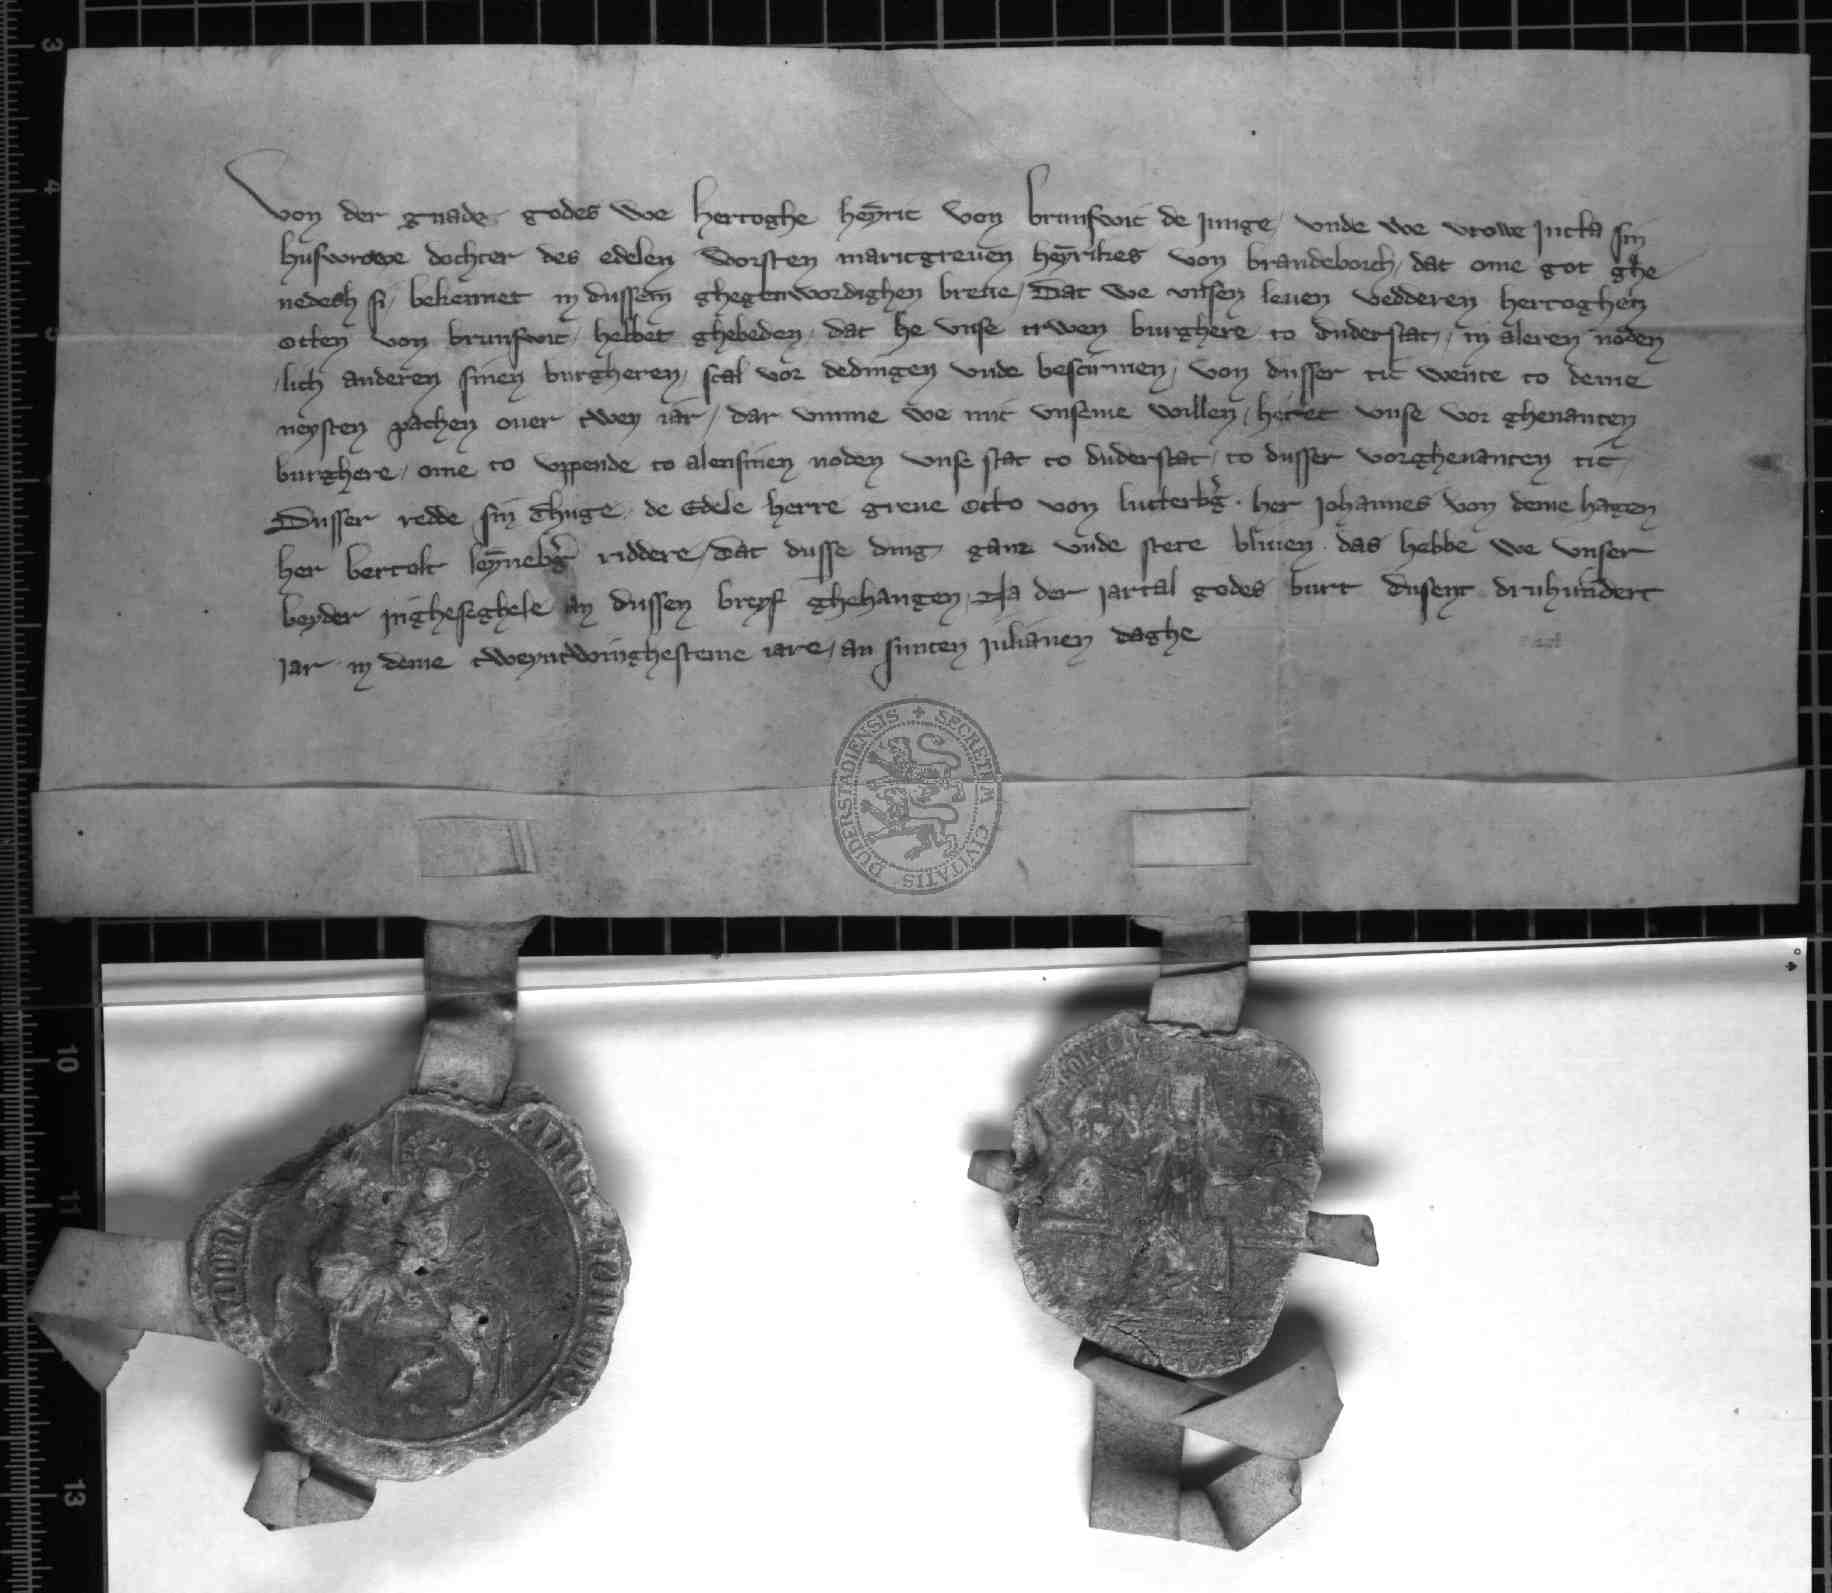 Von der gnade godes we hertoghe heyric von brunswic de junge, vnde we vrowe Jutta sin
husvrowe dochter des edelen vorsten marcgreuen heynrikes von brandeborch, dat ome got ghe
nedich si, bekennet in dussem ghegenwordighen breue, Dat we vnsen leuen vedderen hertoghen
Otten von brunswic, hebbet ghebeden, dat he vnse truwen burghere to duderstat, in aleren noden
lich anderen sinen burgheren, scal vor dedingen vnde bescirmen, von dusser tit wente to deme
neysten pachen ouer twey iar, dar vmme we mit vnseme willen, hetet vnse vor ghenanten
burghere, ome to vppende to alensinen noden vnse stat to duderstat, to dusser vorghenanten tit,
Dusser redde sin thuge, de Edele herre greue Otto von lutterbg. her Johannes von deme hagen
her bertolt leynebg riddere, Dat dusse ding ganz vnde stete bliuen. das hebbe we vnser
beyder ingheseghele an dussen breyf ghehangen, Na der iartal godes burt dusent druhundert
Jar in deme tweyntwinghesteme iare, an sunten Julianen daghe
SECRETUM CIVITATIS DUDERSTADIENSIS
3
4
5
10
11
13